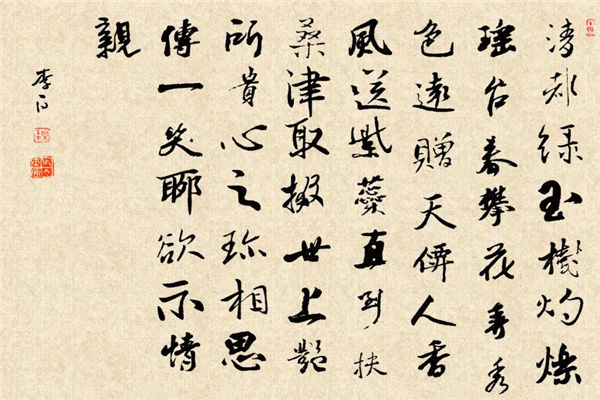 清都綠玉樹灼爍
瑤台春攀花弄秀
色遠贈天僊人香
風送紫蘂直到扶
桑津取掇世上艷
所貴心之珍相思
傳一笑聊欲示情
親
李白